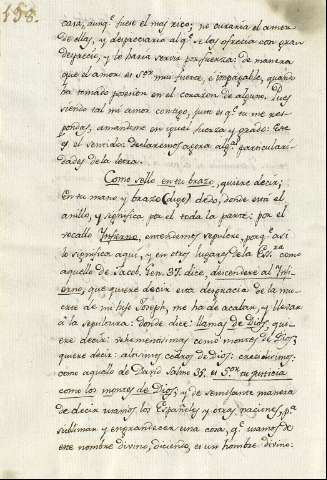 158.
casa, aunq.e fuese el mas rico; no curaria el amor
de ellas, y despreciaria al q.e se las ofrecia con gran
desprecio, y lo haria servir por fuerza: de manera
que el amor es S.or mui fuerte, e implacable, quando
ha tomado posesion en el corazon de alguno. Pues
siendo tal mi amor contigo, justo es q.e tu me res-
pondas, amandome en igual fuerza y grado: Este
es el sentido: declaremos agora alg.s particulari-
dades de la letra.
Como sello en tu brazo, quiere decir;
En tu mano y brazo (digo) dedo, donde esta el
anillo, y significa por el todo la parte: por el
vocablo Infierno, entendemos sepulcro, porq.e asi
lo significa aqui, y en otros lugares de la Ess.ra como
aquello de Jacob. Gen. 37. dice, descendere al Ynf-
ierno, que quiere decir esta desgracia de la mu-
erte de mi hijo Joseph, me ha de acabar, y llevar
à la sepultura: donde dice: llamas de Dios, qui-
ere decir: vehementisimas como montes de Dios,
quiere decir: altisimos cedros de Dios: crecidisimos:
como aquello de David Salmo 35. es S.or tu justicia
como los montes de Dios, y de semejante manera
de decir usamos los Españoles y otras naciones, p.a
sublimar y engrandecer una cosa, q.e usamos de
este nombre divino, diciendo, es un hombre divino: